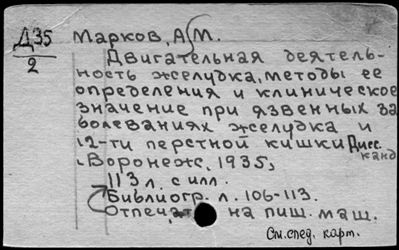 Д35
2
Марков, А.М.
Двигательная деятель-
ность желудка, методы ее
определения и клиническое
значение при язвенных за
болеваниях желудка и
12-ти перстной кишки Дисс.
канд
Воронеж, 1935,
113 л. с илл.
Библиогр. л. 106-113.
Отпечат. на пиш. маш.
См. спец. карт.